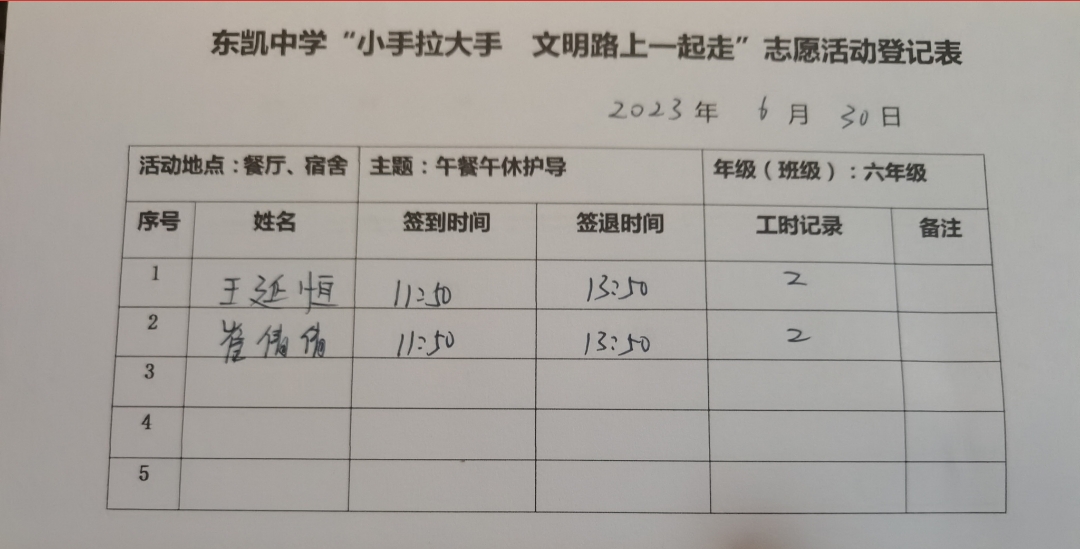 东凯中学“小手拉大手 文明路上一起走”志愿活动登记表
2023年 6月 30日
活动地点：餐厅、宿舍 主题：午餐午休护导 年级（班级）：六年级
序号 姓名 签到时间 签退时间 工时记录 备注
1 王延恒 11:50 13:50 2
2 崔倩倩 11:50 13:50 2
3
4
5